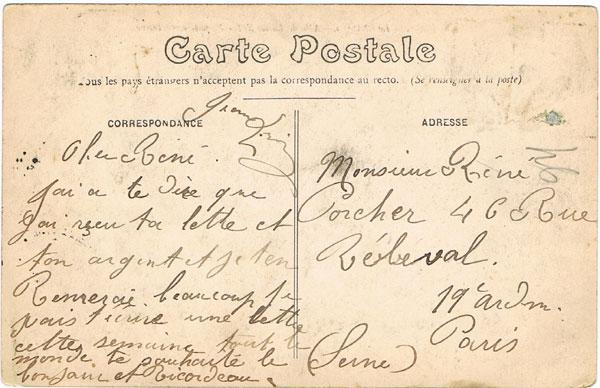 Carte Postale
Tous les pays étrangers n'acceptent pas la correspondance au recto. (Se renseigner à la poste)
CORRESPONDANCE
ADRESSE
Cher René
jai a te dire que
jai reçu ta lette et
ton argent et je ten
Remercie beaucoup je
vais t'ecrire une lette
cette semaine tout le
monde te souhaite le
bonjour et Ricordeau.
Monsieur Réné
Porcher 46 Rue
Rébeval.
19e ardm.
Paris
(Seine)